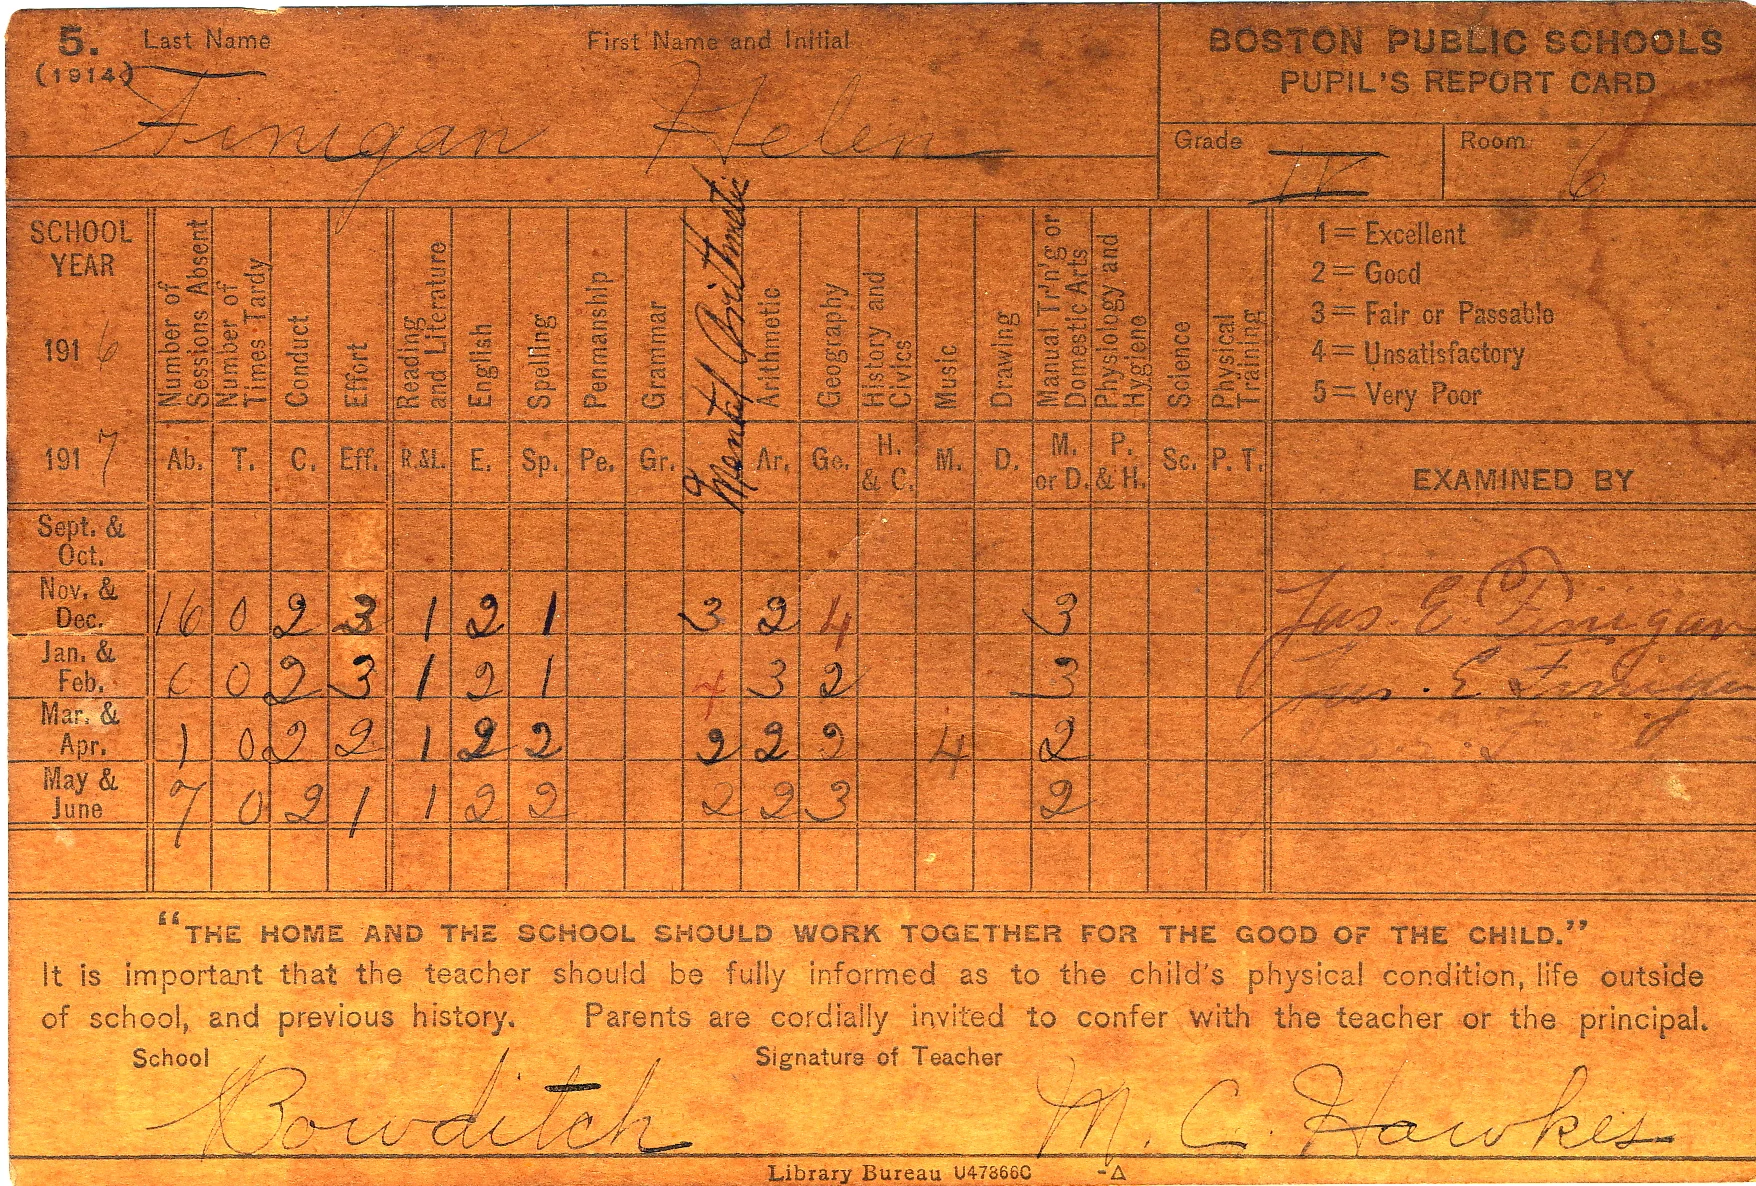 5. Last Name First Name and Initial BOSTON PUBLIC SCHOOLS
(1914) PUPIL'S REPORT CARD
Finigan Helen
Grade IV Room 6
SCHOOL YEAR
191 6
191 7
Number of Sessions Absent
Number of Times Tardy
Conduct
Effort
Reading and Literature
English
Spelling
Penmanship
Grammar
Mental Arithmetic
Arithmetic
Geography
History and Civics
Music
Drawing
Manual Tr'n'g or Domestic Arts
Physiology and Hygiene
Science
Physical Training
1 = Excellent
2 = Good
3 = Fair or Passable
4 = Unsatisfactory
5 = Very Poor
Ab. T. C. Eff. R.&L. E. Sp. Pe. Gr. Ar. Ge. H. & C. M. D. M. or D. P. & H. Sc. P. T. EXAMINED BY
Sept. & Oct.
Nov. & Dec. 16 0 2 3 1 2 1 3 2 4 3 Jas. E Finigan
Jan. & Feb. 6 0 2 3 1 2 1 4 3 2 3 Jas. E Finigan
Mar. & Apr. 1 0 2 2 1 2 2 2 2 2 4 2
May & June 7 0 2 1 1 2 2 2 2 3 2
"THE HOME AND THE SCHOOL SHOULD WORK TOGETHER FOR THE GOOD OF THE CHILD."
It is important that the teacher should be fully informed as to the child's physical condition, life outside
of school, and previous history. Parents are cordially invited to confer with the teacher or the principal.
School Signature of Teacher
Bowditch M. C. Hawkes
Library Bureau U47366C -Δ